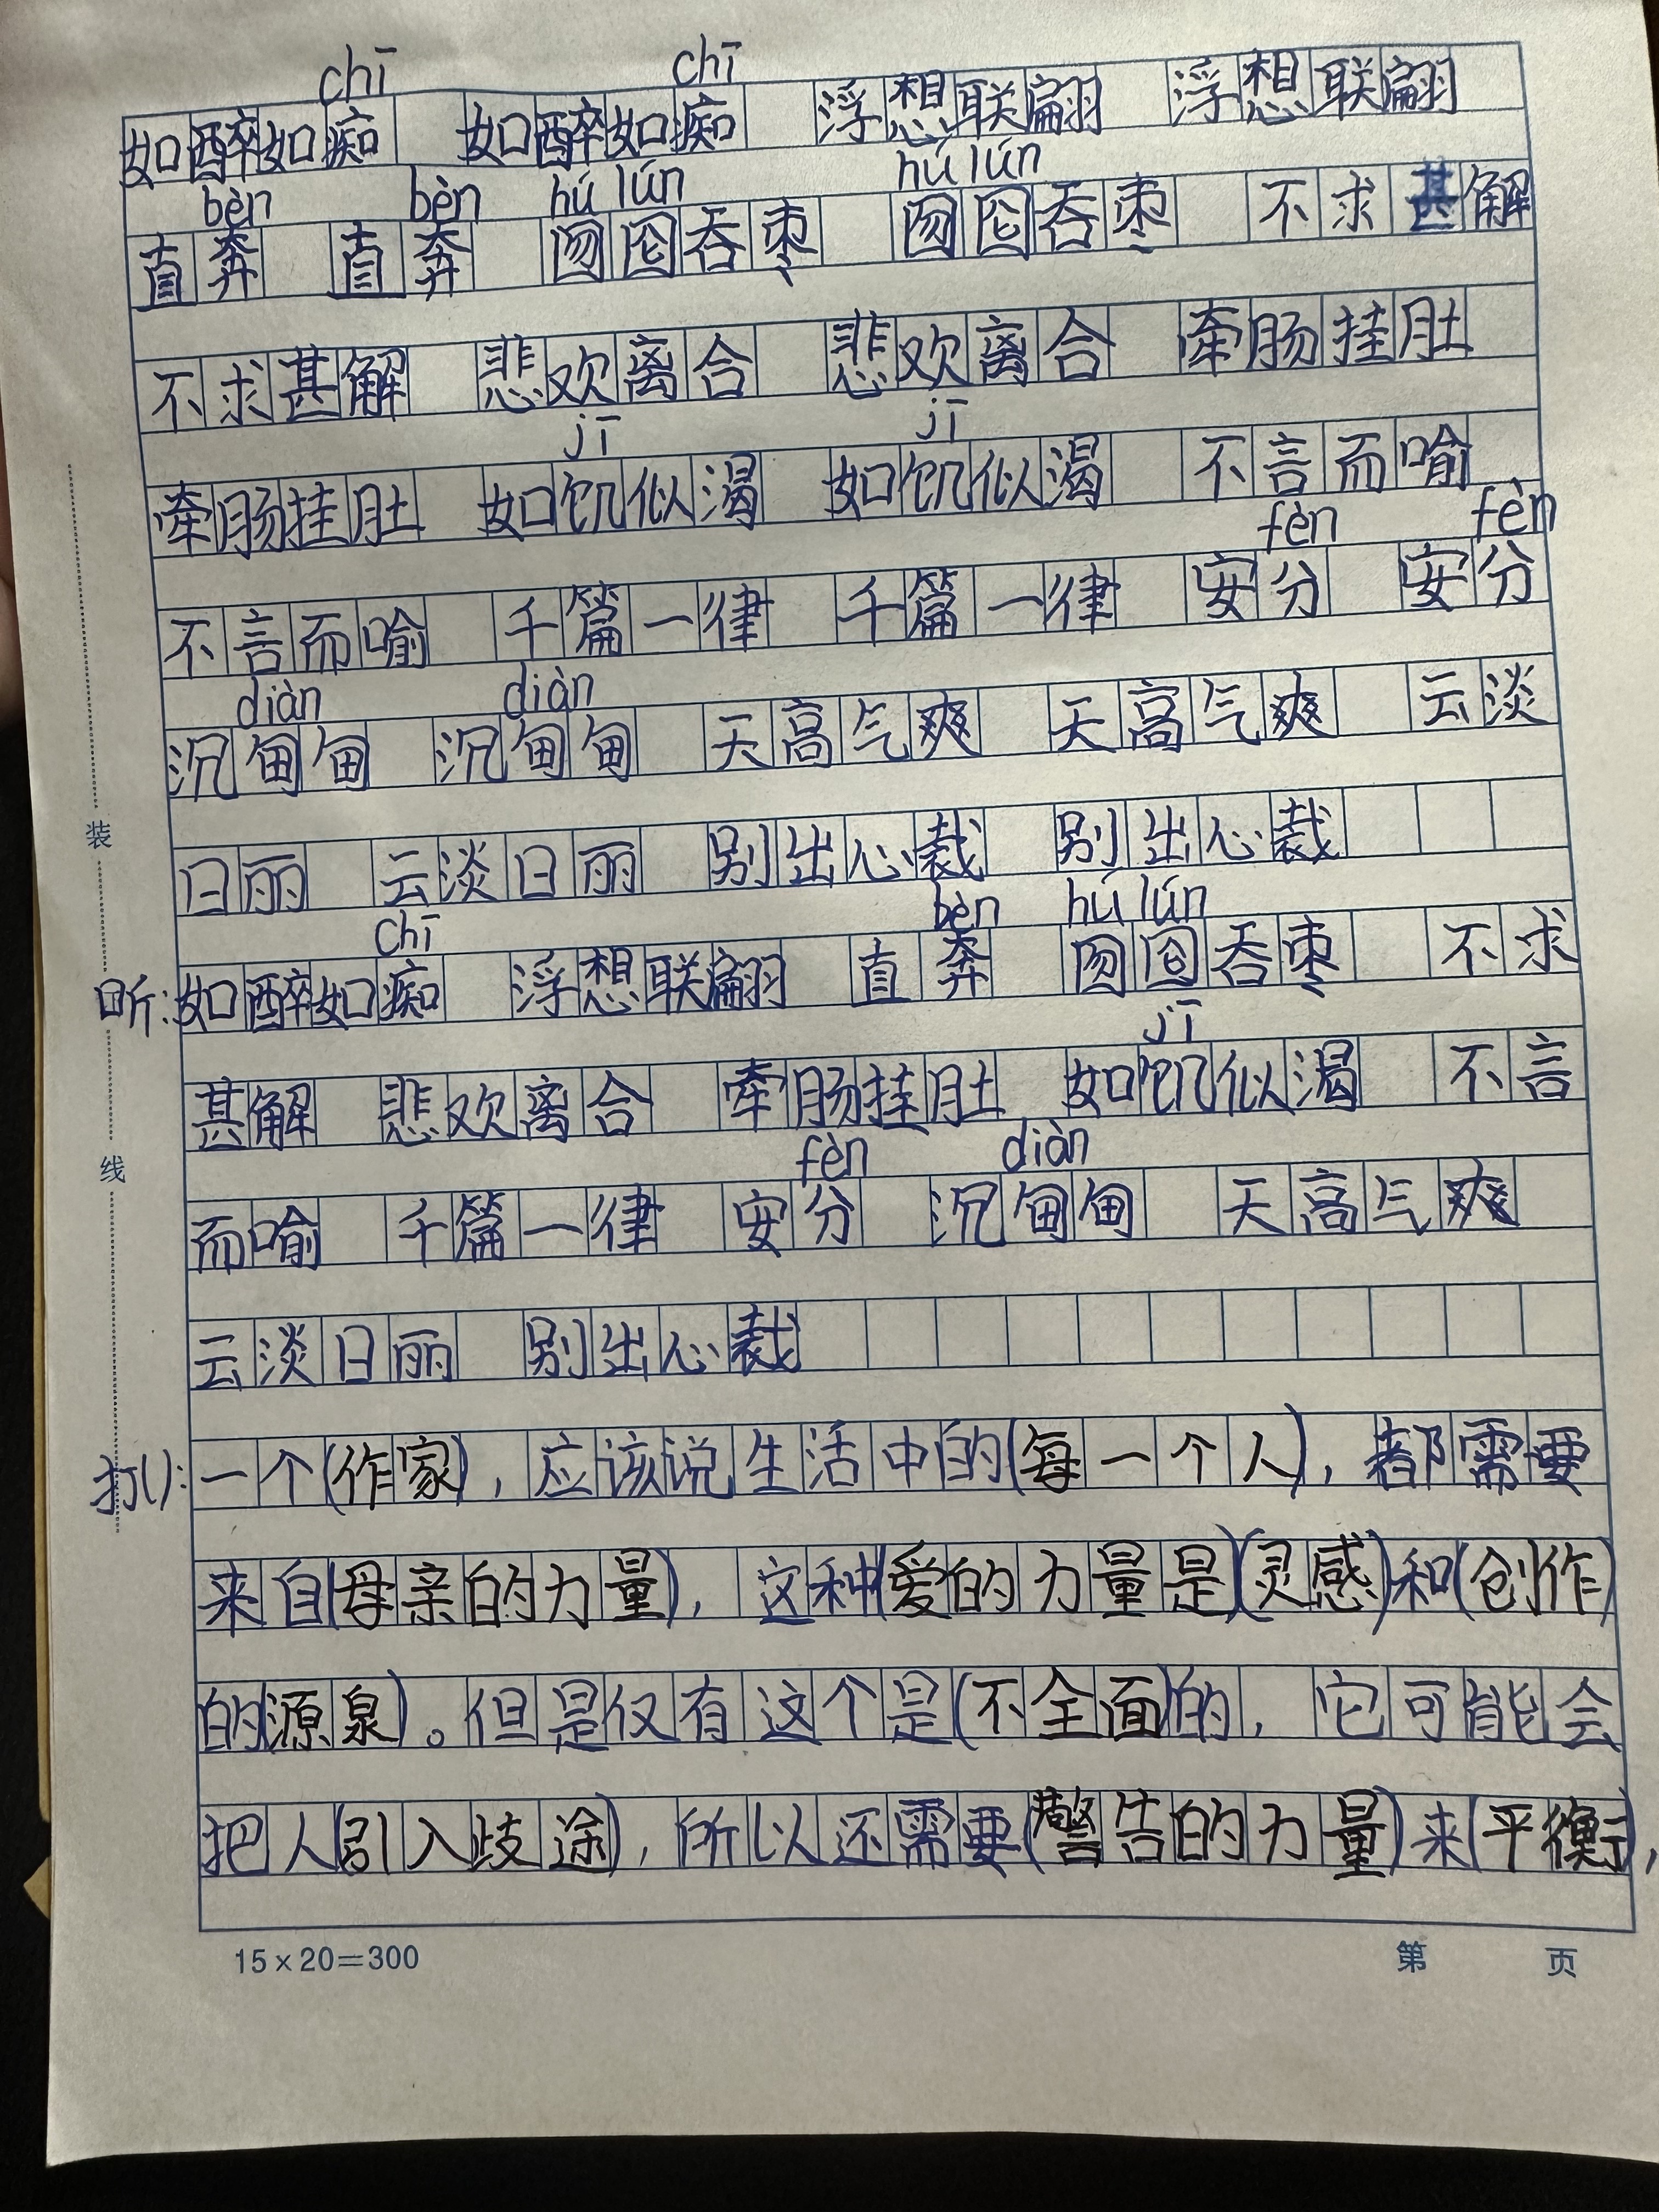 chī chī
如醉如痴 如醉如痴 浮想联翩 浮想联翩
bèn bèn hú lún hú lún
直奔 直奔 囫囵吞枣 囫囵吞枣 不求甚解
不求甚解 悲欢离合 悲欢离合 牵肠挂肚
jī jī
牵肠挂肚 如饥似渴 如饥似渴 不言而喻
fèn fèn
不言而喻 千篇一律 千篇一律 安分 安分
diàn diàn
沉甸甸 沉甸甸 天高气爽 天高气爽 云淡
日丽 云淡日丽 别出心裁 别出心裁
chī bèn hú lún
听:如醉如痴 浮想联翩 直奔 囫囵吞枣 不求
jī
甚解 悲欢离合 牵肠挂肚 如饥似渴 不言
fèn diàn
而喻 千篇一律 安分 沉甸甸 天高气爽
云淡日丽 别出心裁
打():一个(作家),应该说生活中的(每一个人),都需要
来自(母亲的力量),这种(爱的力量是)(灵感)和(创作)
的(源泉)。但是仅有这个是(不全面)的,它可能会
把人(引入歧途),所以还需要(警告的力量)来(平衡),
装
线
15×20=300
第 页